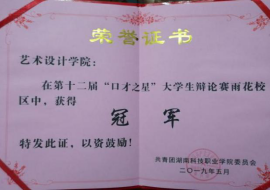 荣誉证书
艺术设计学院：
在第十二届“口才之星”大学生辩论赛雨花校
区中，获得
冠 军
特发此证，以资鼓励！
共青团湖南科技职业学院委员会
二〇一九年五月